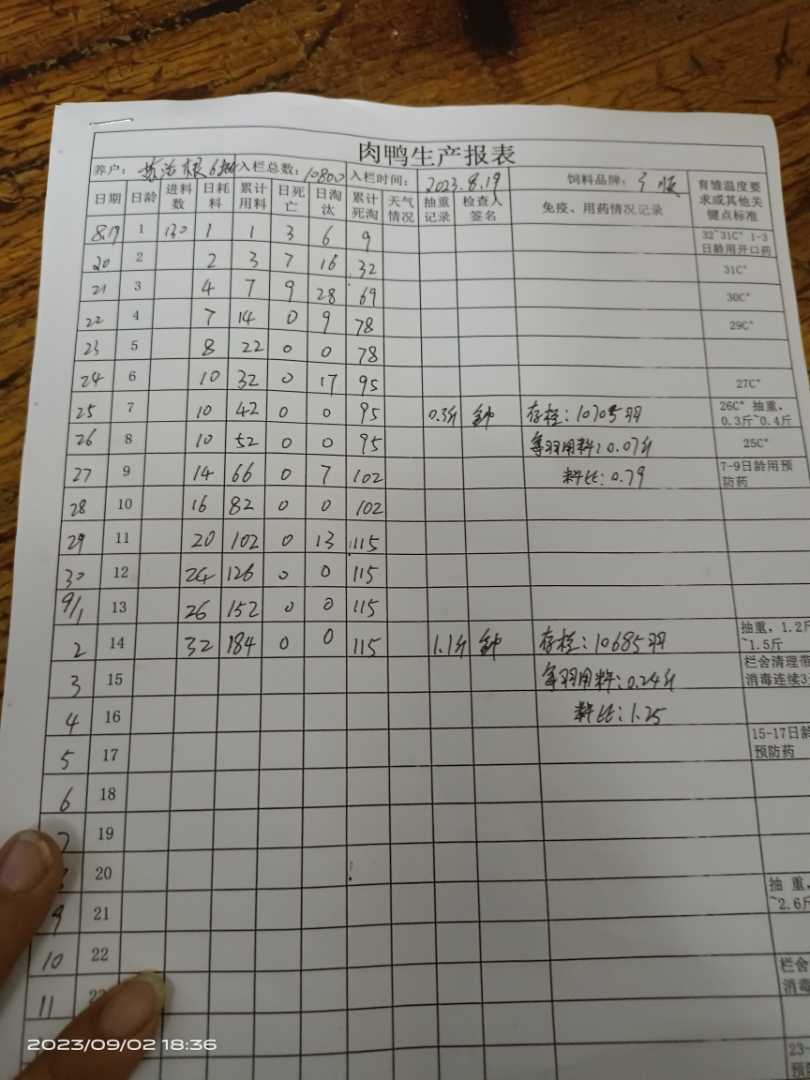 肉鸭生产报表
养户: 根 6 入栏总数: 10800 入栏时间: 2023.8.19 饲料品牌:
日期 日龄 进料数 日耗料 累计用料 日死亡 日淘汰 累计死淘 天气情况 抽重记录 检查人签名 免疫、用药情况记录 育雏温度要求或其他关键点标准
8.19 1 130 1 1 3 6 9 32~31C° 1-3日龄用开口药
20 2 2 3 7 16 32 31C°
21 3 4 7 9 28 69 30C°
22 4 7 14 0 9 78 29C°
23 5 8 22 0 0 78
24 6 10 32 0 17 95 27C°
25 7 10 42 0 0 95 0.3斤 钟 存栏:10705羽 26C° 抽重,0.3斤~0.4斤
26 8 10 52 0 0 95 每羽用料:0.07斤 25C°
27 9 14 66 0 7 102 料比:0.79 7-9日龄用预防药
28 10 16 82 0 0 102
29 11 20 102 0 13 115
30 12 24 126 0 0 115
9/1 13 26 152 0 0 115
2 14 32 184 0 0 115 1.1斤 钟 存栏:10685羽 抽重,1.2斤~1.5斤
3 15 每羽用料:0.24斤 栏舍清理 消毒连续3
4 16 料比:1.25
5 17 15-17日龄 预防药
6 18
7 19
20
9 21 抽重, ~2.6斤
10 22
11 栏舍 消毒
23-
2023/09/02 18:36